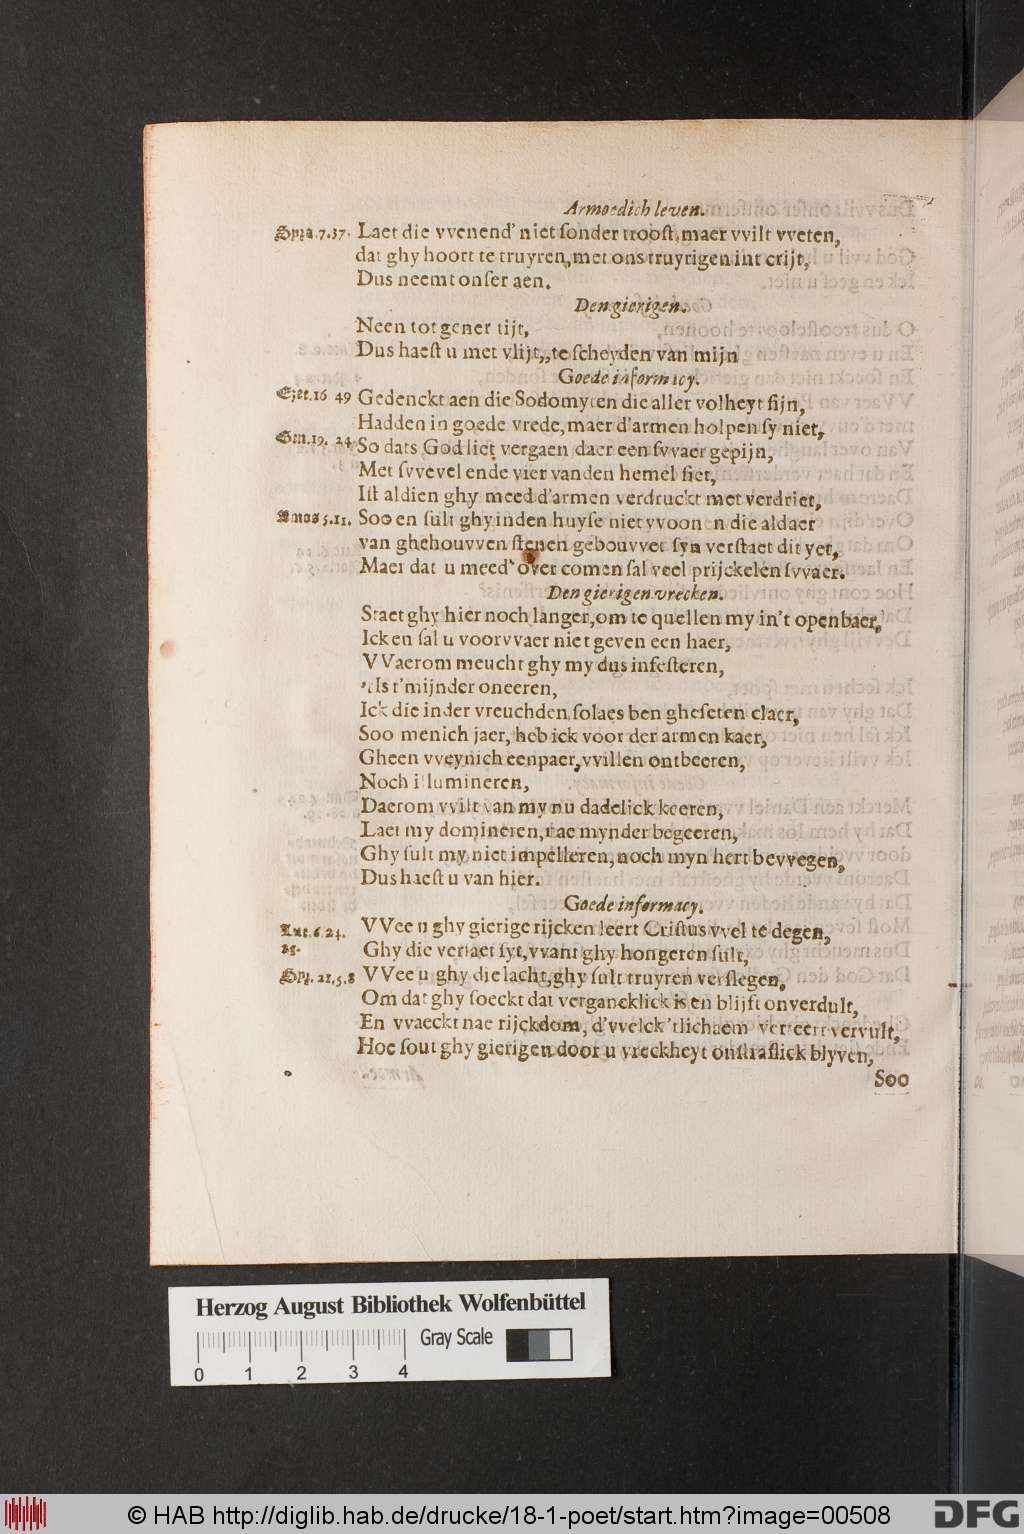 Armoedich leven.
Spra.7.37. Laet die vvenend' niet ſonder trooſt, maer vvilt vveten,
dat ghy hoort te truyren, met ons truyrigen int crijt,
Dus neemt onſer aen.
Den gierigen.
Neen tot gener tijt,
Dus haeſt u met vlijt,, te ſcheyden van mijn
Goede informacy.
Ezec.16 49 Gedenckt aen die Sodomyten die aller volheyt ſijn,
Hadden in goede vrede, maer d'armen holpen ſy niet,
Gen.19. 24. So dats God liet vergaen daer een ſvvaer gepijn,
Met ſvvevel ende vier vanden hemel ſiet,
Iſt aldien ghy meed d'armen verdruckt met verdriet,
Amos 5.11. Soo en ſult ghy inden huyſe niet vvoon n die aldaer
van ghehouvven ſtenen gebouvvet ſyn verſtaet dit yet,
Maer dat u meed' over comen ſal veel prijckelen ſvvaer.
Den gierigen vrecken.
Staet ghy hier noch langer, om te quellen my in't openbaer,
Ick en ſal u voorvvaer niet geven een haer,
VVaerom meucht ghy my dus infeſteren,
'tIs t'mijnder oneeren,
Ick die inder vreuchden ſolaes ben gheſeten claer,
Soo menich jaer, heb ick voor der armen kaer,
Gheen vveynich eenpaer, vvillen ontbeeren,
Noch illumineren,
Daerom vvilt van my nu dadelick keeren,
Laet my domineren, nae mynder begeeren,
Ghy ſult my niet impelleren, noch myn hert bevvegen,
Dus haeſt u van hier.
Goede informacy.
Luc.6.24. VVee u ghy gierige rijcken leert Criſtus vvel te degen,
25. Ghy die verſaet ſyt, vvant ghy hongeren ſult,
Spz. 21.5.8 VVee u ghy die lacht, ghy ſult truyren verſlegen,
Om dat ghy ſoeckt dat verganeklick is en blijft onverdult,
En vvaeckt nae rijckdom, d'vvelck 'tlichaem verteert vervult,
Hoe ſout ghy gierigen door u vreckheyt onſtraflick blyven,
Soo
Herzog August Bibliothek Wolfenbüttel
Gray Scale
0 1 2 3 4
© HAB http://diglib.hab.de/drucke/18-1-poet/start.htm?image=00508
DFG